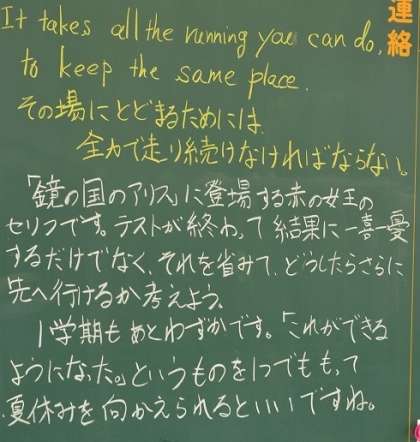 連絡
It takes all the running you can do,
to keep the same place.
その場にとどまるためには、
全力で走り続けなければならない。
「鏡の国のアリス」に登場する赤の女王の
セリフです。テストが終わって結果に一喜一憂
するだけでなく、それを省みて、どうしたらさらに
先へ行けるか考えよう。
1学期もあとわずかです。「これができる
ようになった。」というものを1つでももって
夏休みを向かえられるといいですね。